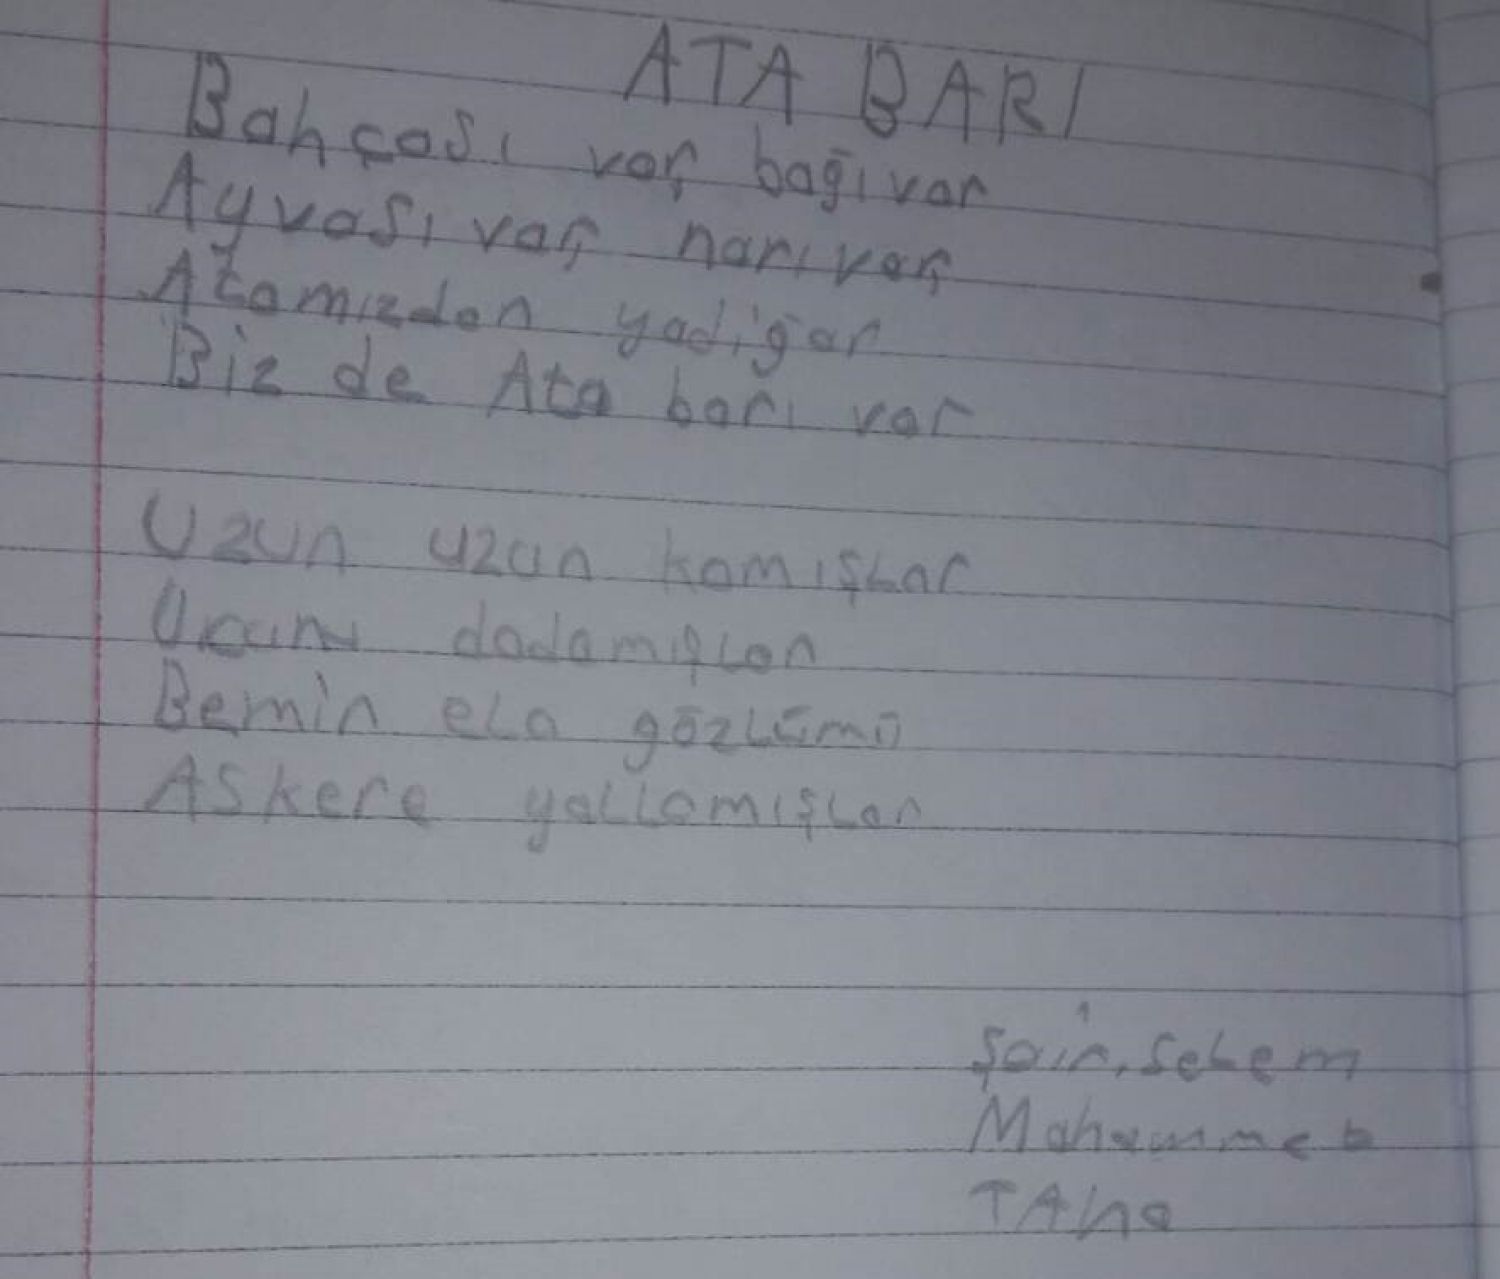 ATA BARI
Bahçası var bağı var
Ayvası var narı var
Atamızdan yadiğar
Biz de Ata barı var
Uzun uzun kamışlar
Ucunu dadamışlar
Bemin ela gözlümü
Askere yallamışlar
Şair, Selem
Mahammet
TAha